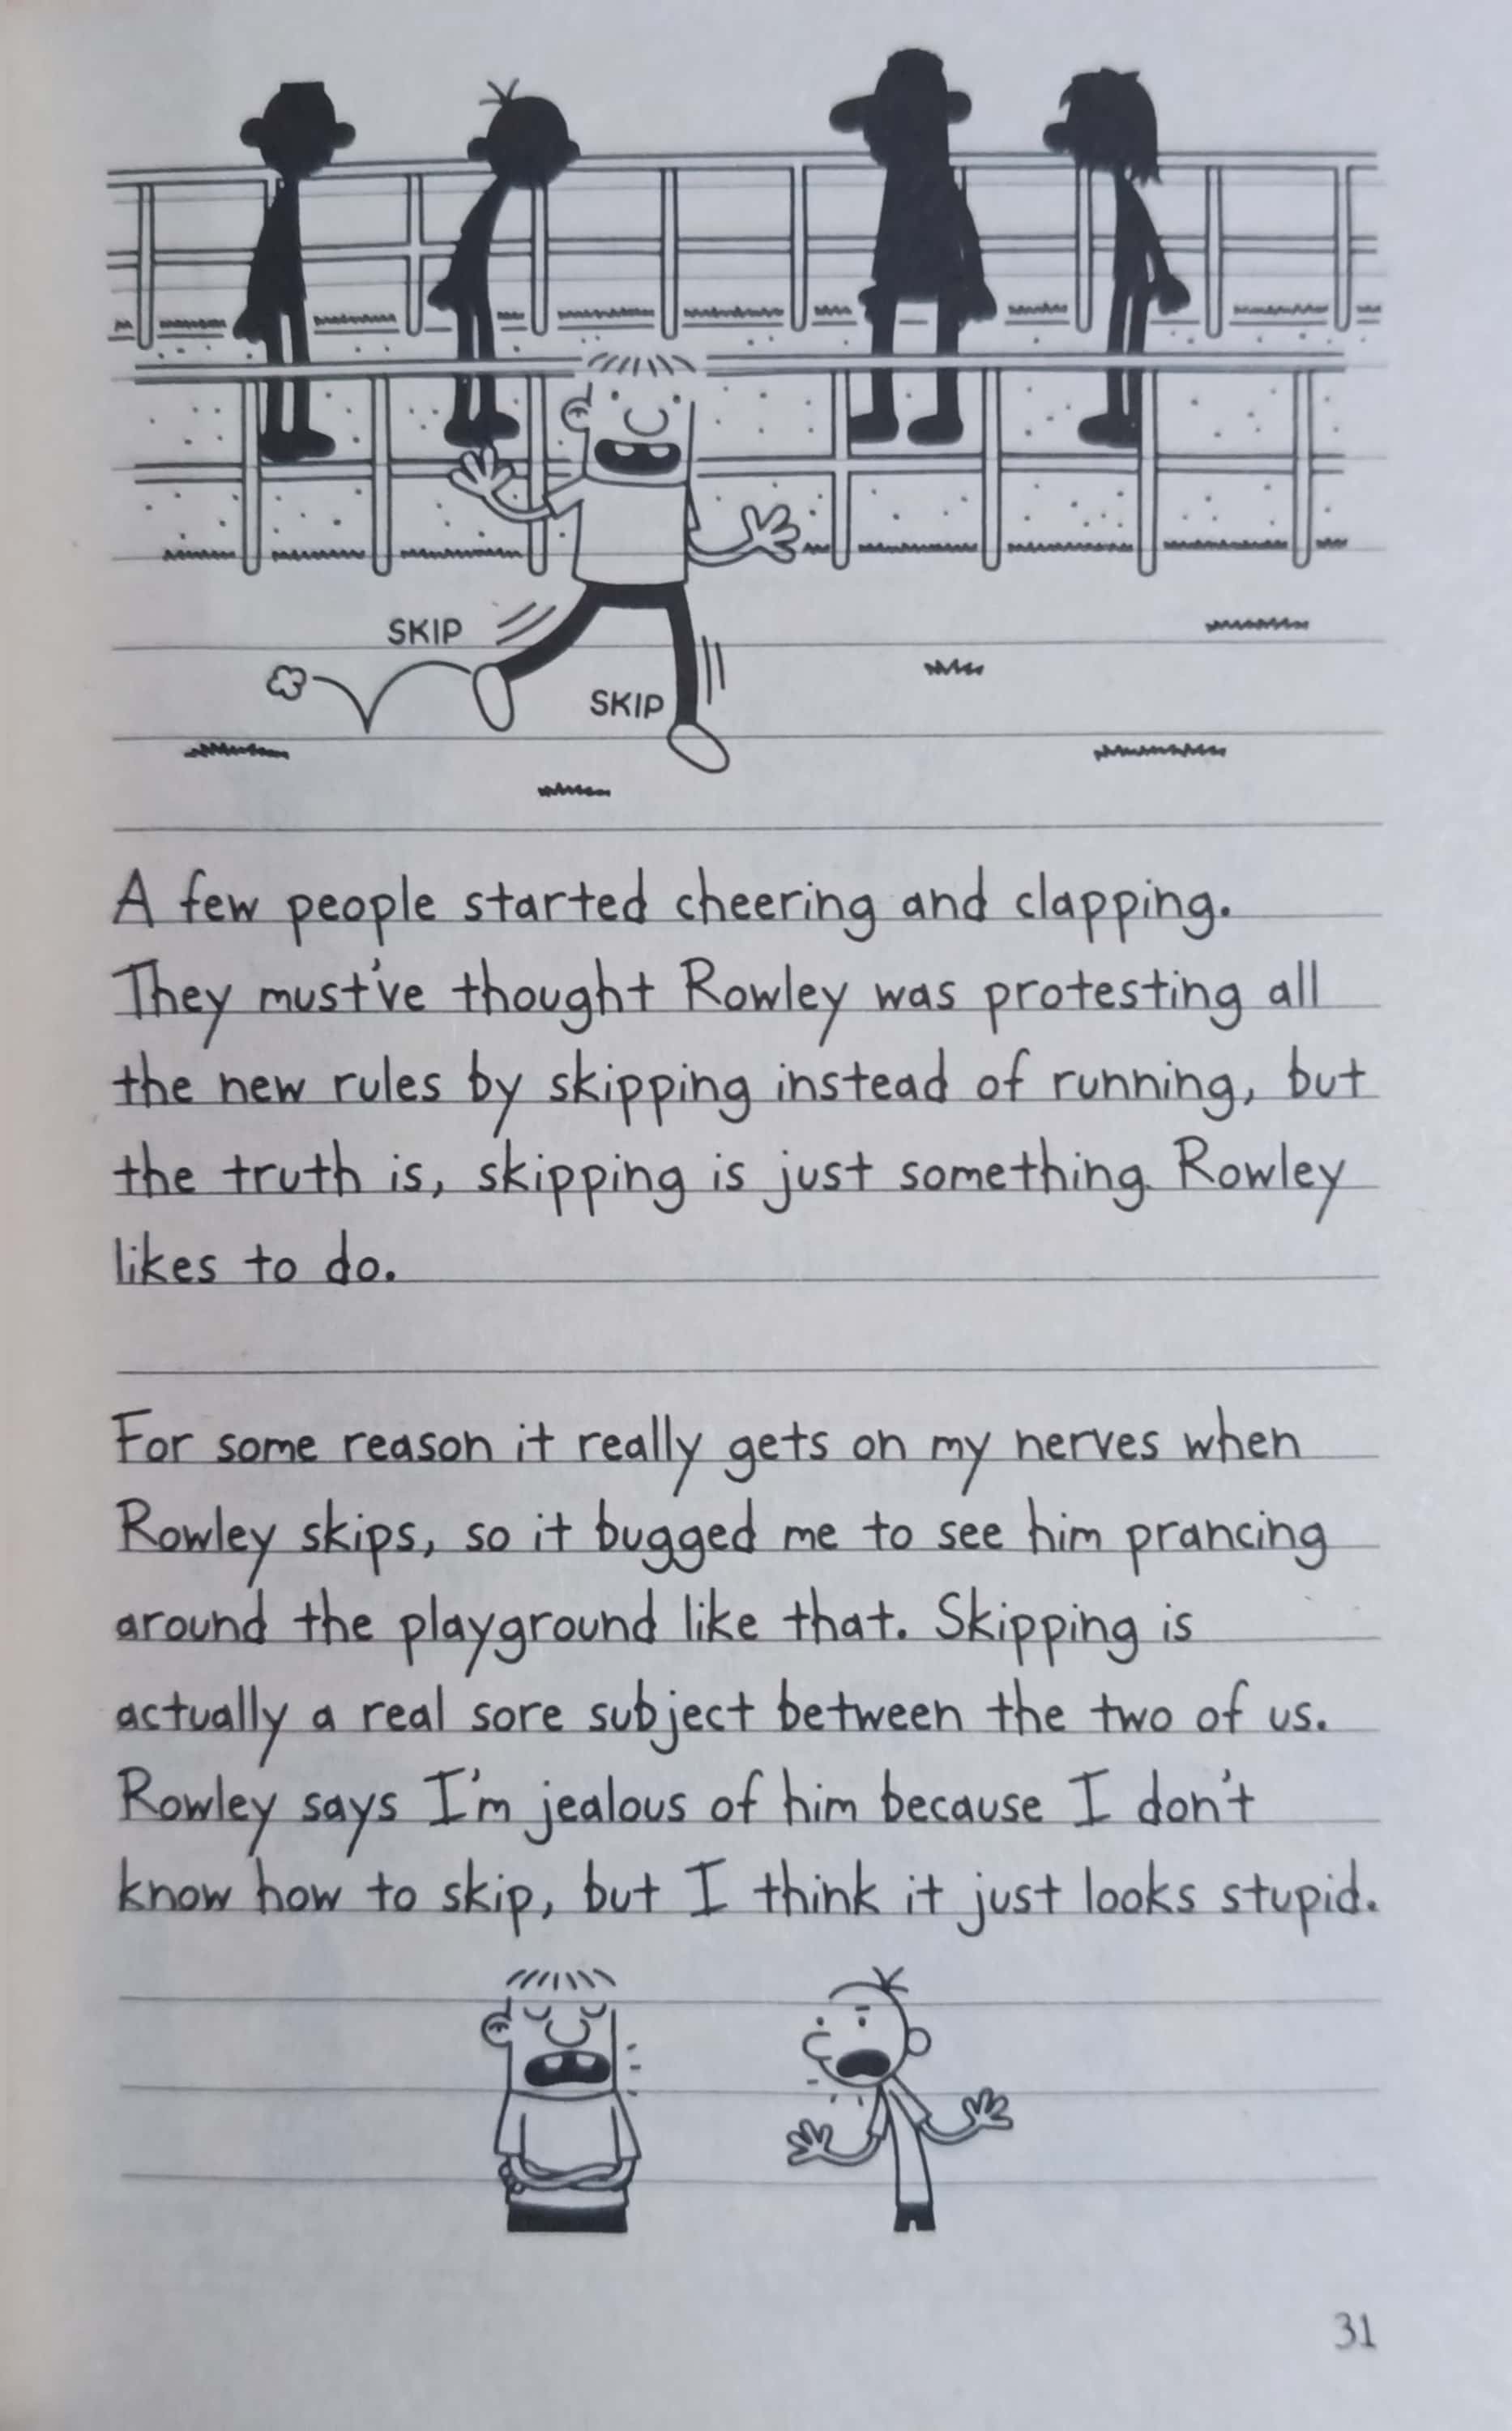 SKIP
SKIP
A few people started cheering and clapping.
They must've thought Rowley was protesting all
the new rules by skipping instead of running, but
the truth is, skipping is just something Rowley
likes to do.
For some reason it really gets on my nerves when
Rowley skips, so it bugged me to see him prancing
around the playground like that. Skipping is
actually a real sore subject between the two of us.
Rowley says I'm jealous of him because I don't
know how to skip, but I think it just looks stupid.
31